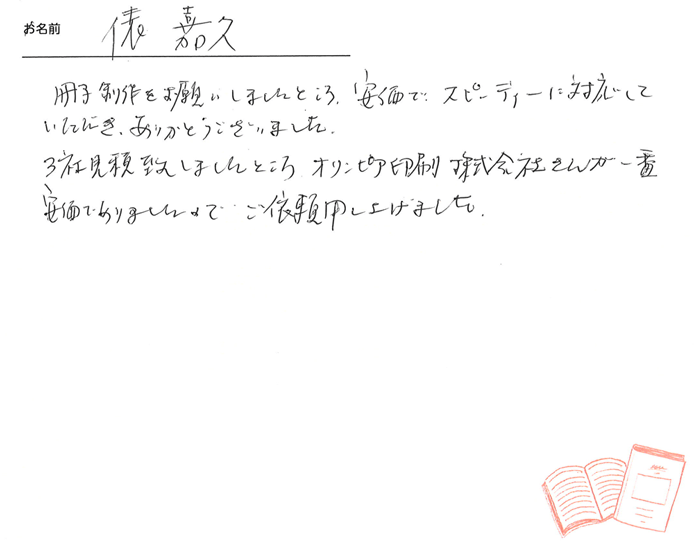 お名前 俵 嘉久
冊子制作をお願いしましたところ、安価で、スピーディーに対応して
いただき、ありがとうございました。
3社見積致しましたところ オリンピア印刷 株式会社さんが一番
安価でありましたので ご依頼申し上げました。